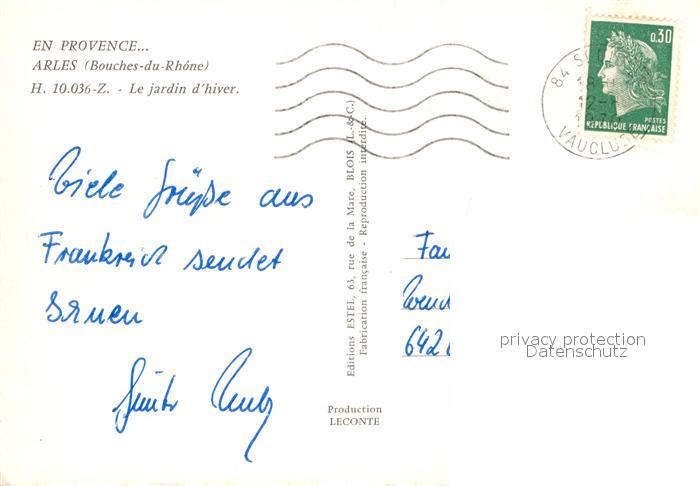 EN PROVENCE...
ARLES (Bouches-du-Rhône)
H. 10.036-Z. - Le jardin d'hiver.
0.30
POSTES
REPUBLIQUE FRANÇAISE
84
VAUCLUSE
Viele Grüße aus
Frankreich sendet
Ihnen
Günter
Editions ESTEL, 63, rue de la Mare, BLOIS (L.-&-C.)
Fabrication française - Reproduction interdite.
Fa
642
privacy protection
Datenschutz
Production
LECONTE